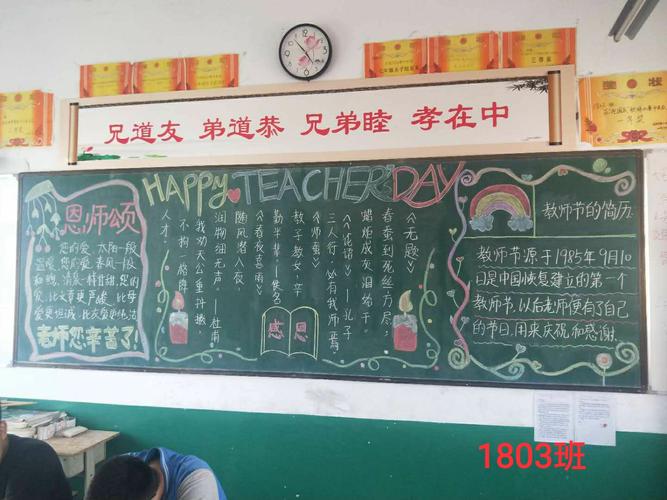 兄道友 弟道恭 兄弟睦 孝在中
HAPPY TEACHER'S DAY
恩师颂
您的爱，太阳一般
温暖，您的爱，春风一般
和煦，清泉一样甘甜，您的
爱，比父爱更严峻，比母
爱更细腻，比友爱更纯洁
老师您辛苦了！
《无题》
春蚕到死丝方尽，
蜡炬成灰泪始干。
《论语》——孔子
三人行，必有我师焉。
《师恩》
教子教女，辛
勤半辈——佚名
《春夜喜雨》
随风潜入夜，
润物细无声。——杜甫
我劝天公重抖擞，
不拘一格降
人才。
感恩
教师节的简历
教师节源于1985年9月10
日是中国恢复建立的第一个
教师节，以后老师便有了自己
的节日，用来庆祝和感谢。
1803班